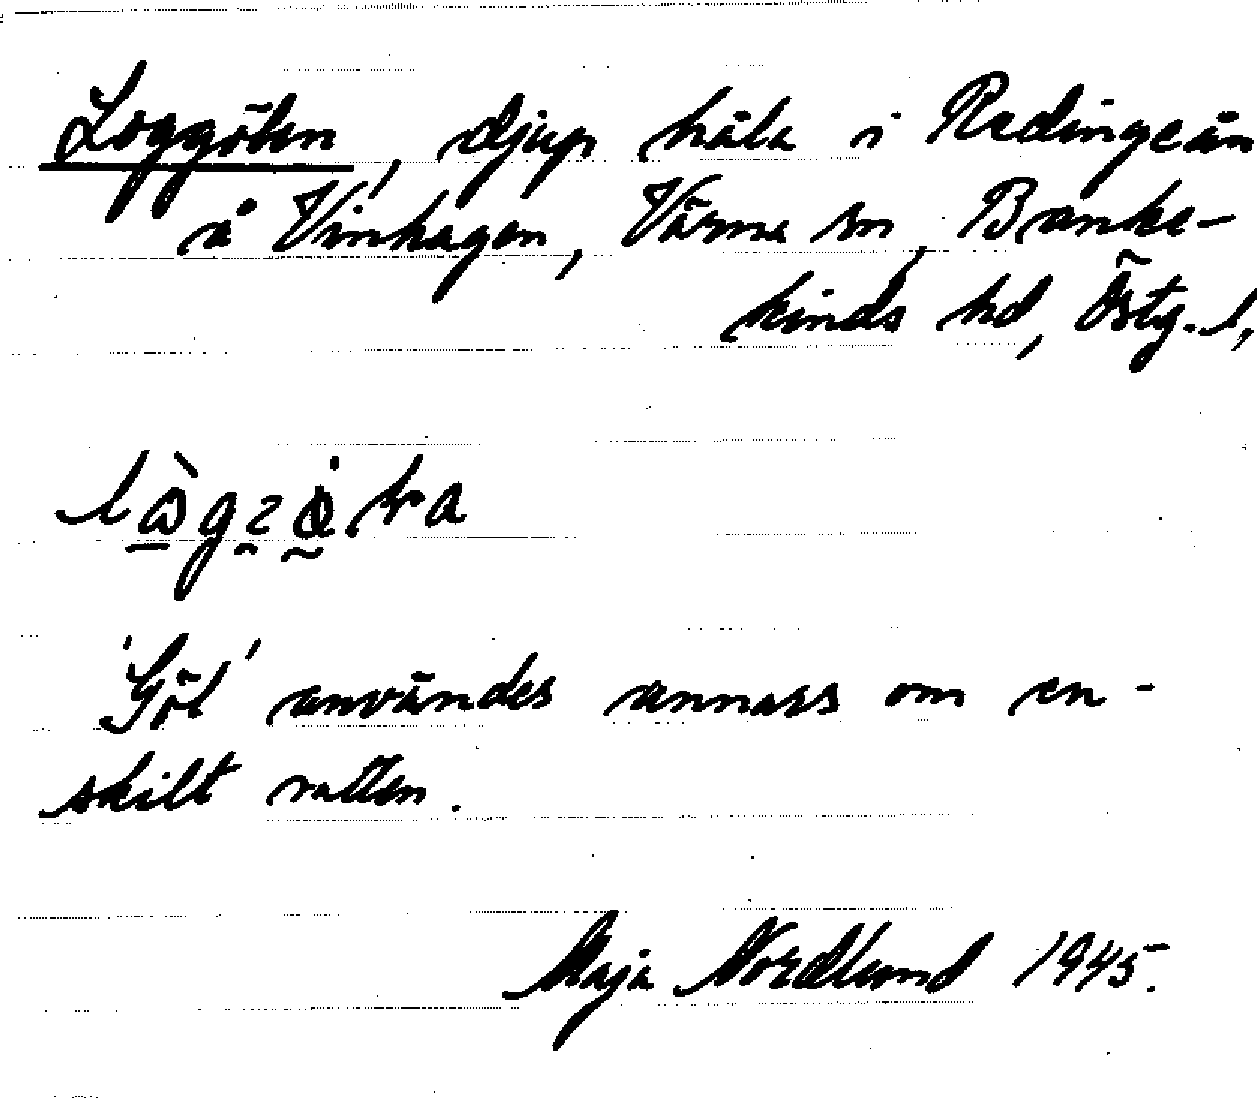 Loggölen, djup håla i Redingeån
å Vinhagen, Värna sn, Banke-
kinds hd, Östg. l,
'Göl' användes annars om en-
skilt vatten.
Maja Nordlund 1945.